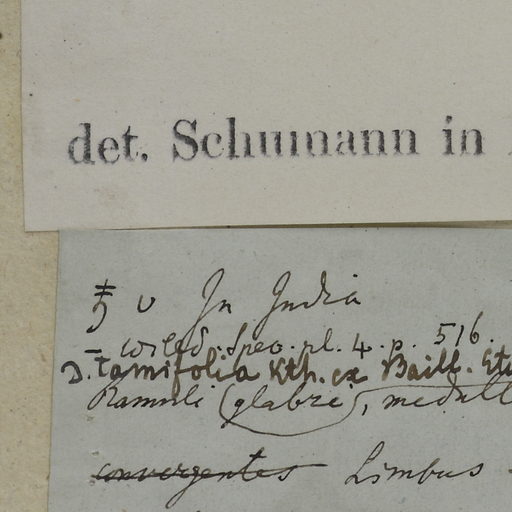 det. Schumann in
♄ ∪ In India
– Willd. Spec. pl. 4. p. 516.
D. tamifolia Kth. ex Baill. Etu
Ramuli (glabri), medull
convergentes Limbus